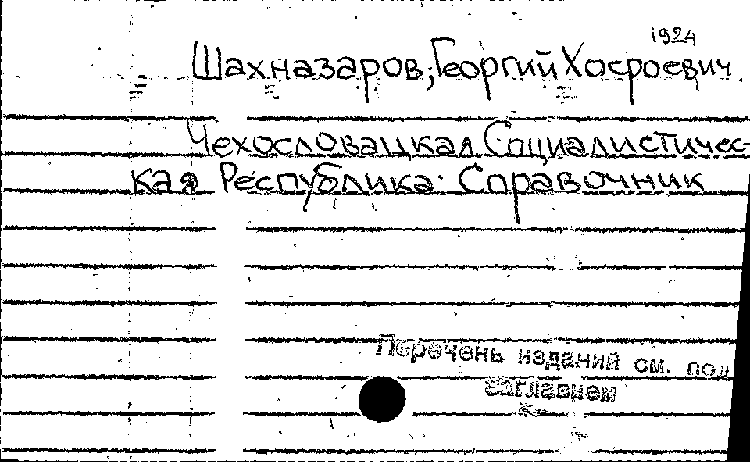 1924
Шахназаров, Георгий Хосроевич.
Чехословацкая Социалистичес-
кая Республика. Справочник
Перечень изданий см. под
заглавием